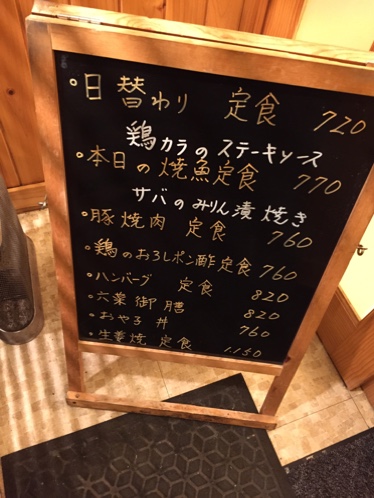 日替わり 定食 720
鶏カラのステーキソース
本日の焼魚定食 770
サバのみりん漬焼き
豚焼肉 定食 760
鶏のおろしポン酢定食 760
ハンバーグ 定食 820
六菜御膳 820
おやこ丼 760
生姜焼定食 1,150